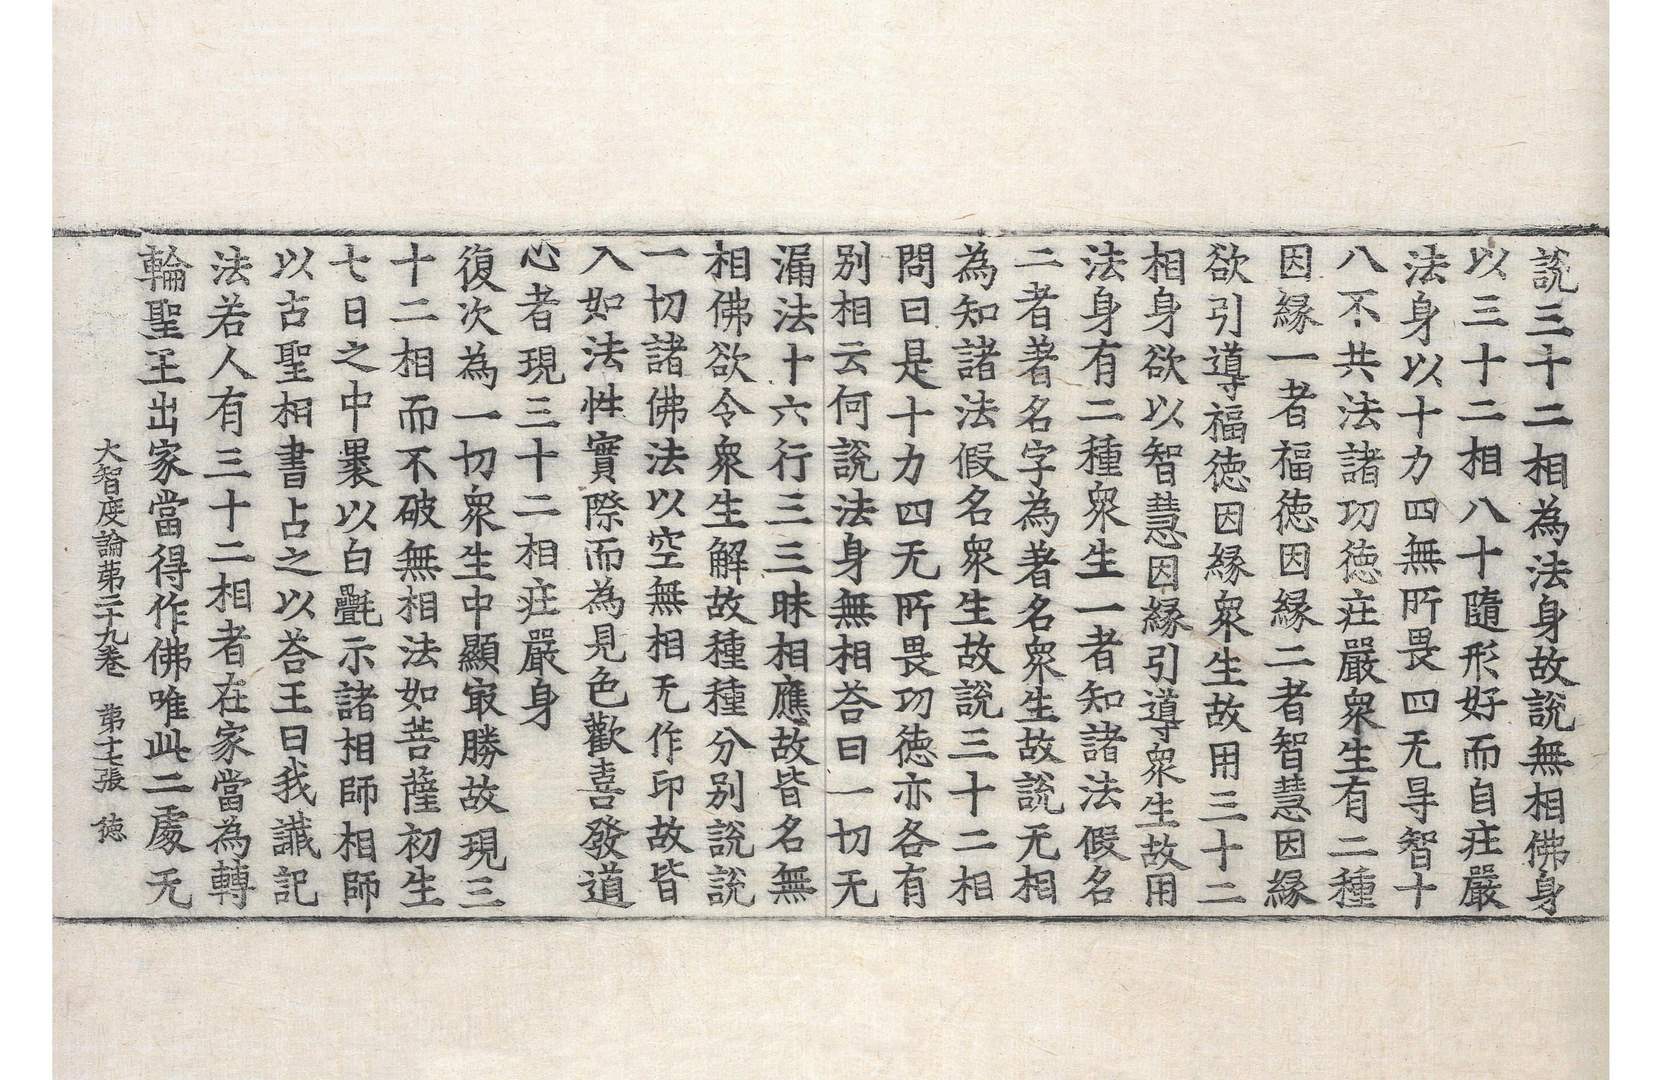 說三十二相為法身故說無相佛身
以三十二相八十隨形好而自莊嚴
法身以十力四無所畏四无㝵智十
八不共法諸功徳莊嚴衆生有二種
因縁一者福徳因縁二者智慧因縁
欲引導福徳因縁衆生故用三十二
相身欲以智慧因縁引導衆生故用
法身有二種衆生一者知諸法假名
二者著名字為著名衆生故說无相
為知諸法假名衆生故說三十二相
問曰是十力四无所畏功徳亦各有
別相云何說法身無相荅曰一切无
漏法十六行三三昧相應故皆名無
相佛欲令衆生解故種種分別說說
一切諸佛法以空無相无作印故皆
入如法性實際而為見色歡喜發道
心者現三十二相莊嚴身
復次為一切衆生中顯㝡勝故現三
十二相而不破無相法如菩薩初生
七日之中褁以白㲲示諸相師相師
以古聖相書占之以荅王曰我讖記
法若人有三十二相者在家當為轉
輪聖王出家當得作佛唯此二處无
大智度論苐二十九卷 苐十七張 徳